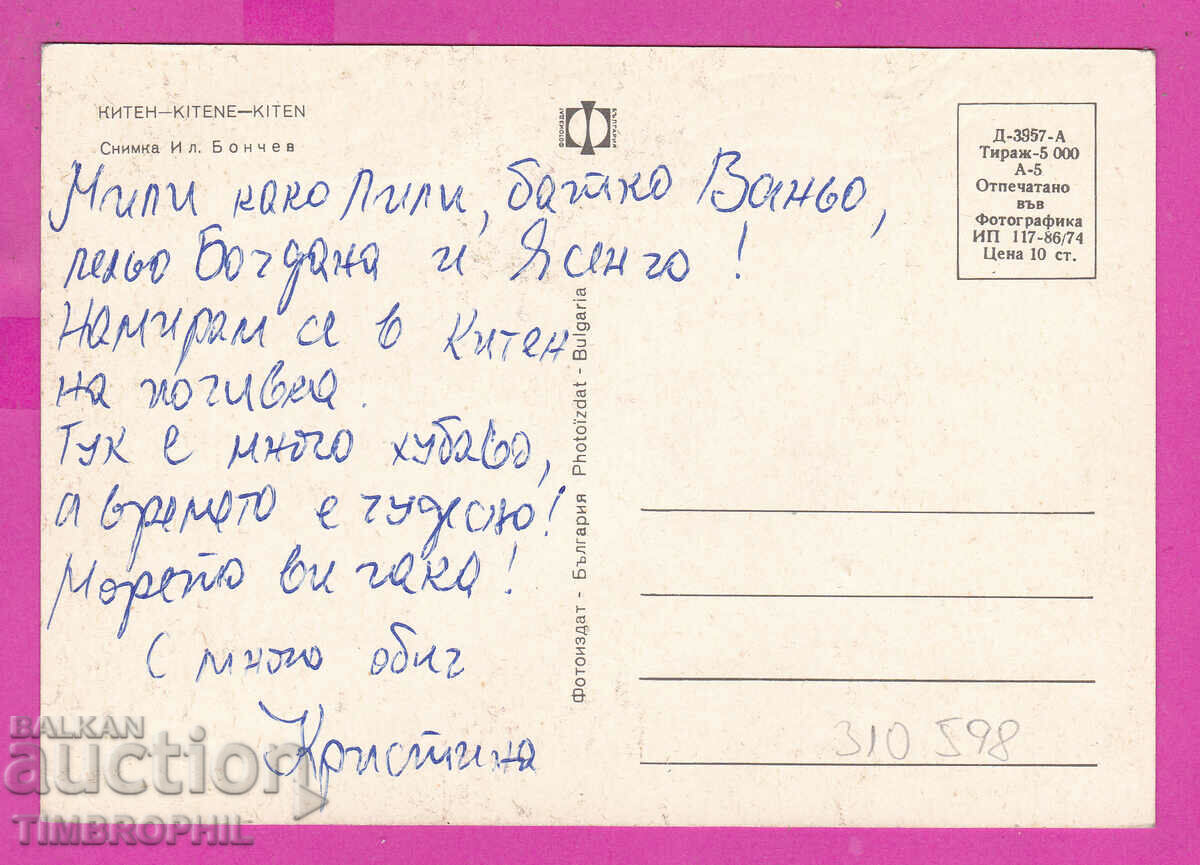 КИТЕН—KITENE—KITEN
Снимка Ил. Бончев
Мили како Лили, батко Ваньо,
лельо Богдана и Ясенчо!
Намирам се в Китен
на почивка.
Тук е много хубаво,
а времето е чудесно!
Морето ви чака!
С много обич
Кристина
ФОТОИЗДАТ
БЪЛГАРИЯ
Фотоиздат - България Photoïzdat - Bulgaria
Д-3957-А
Тираж-5 000
А-5
Отпечатано
във
Фотографика
ИП 117-86/74
Цена 10 ст.
310 598
BALKAN
auction
TIMBROPHIL